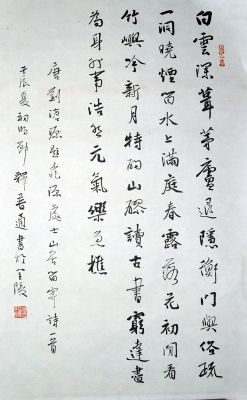 白雲深葺茅廬退隱衡門與俗疏
一洞曉煙留水上滿庭春露落花初閒看
竹嶼吟新月特酌山醪讀古書窮達盡
為身外事浩然元氣樂至樵
唐劉滄題龍源處士山居留寧詩一首
壬辰夏初
釋普通書於金陵